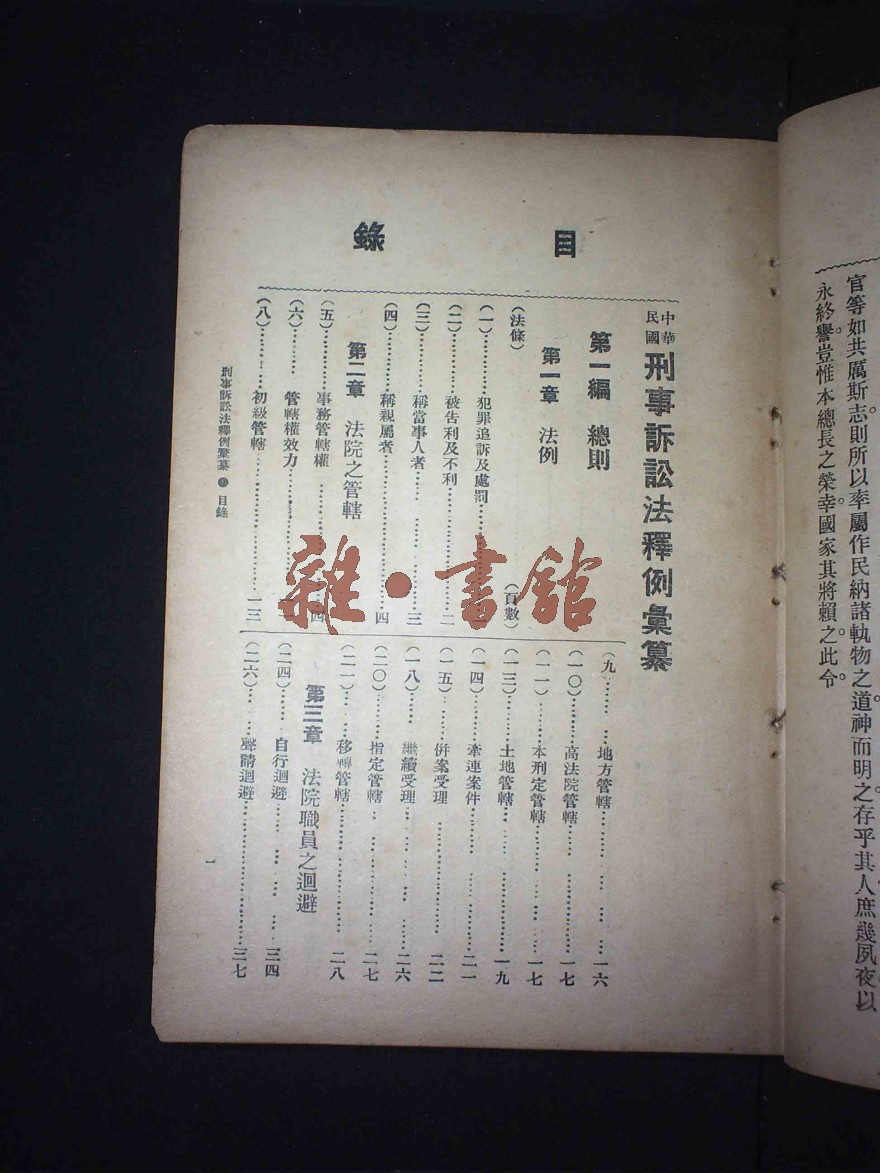 官等如共厲斯志則所以率屬作民納諸軌物之道神而明之存乎其人庶幾夙夜以
永終譽豈惟本總長之榮幸國家其將賴之此令
目錄
中華民國刑事訴訟法釋例彙纂
第一編 總則
第一章 法例
(法條) (頁數)
(一)………犯罪追訴及處罰………
(二)………被吿利及不利………二
(三)………稱當事人者………三
(四)………稱親屬者………四
第二章 法院之管轄
(五)………事務管轄權………四
(六)………管轄權效力………
(八)………初級管轄………一三
(九)………地方管轄………一六
(一〇)………高法院管轄………一七
(一一)………本刑定管轄………一七
(一三)………土地管轄………一九
(一四)………牽連案件………二一
(一五)………併案受理………二二
(一八)………繼續受理………二六
(二〇)………指定管轄………二七
(二一)………移轉管轄………二八
第三章 法院職員之迴避
(二四)………自行迴避………三四
(二六)………聲請迴避………三七
刑事訴訟法釋例彙纂 目錄
一
雜·書館